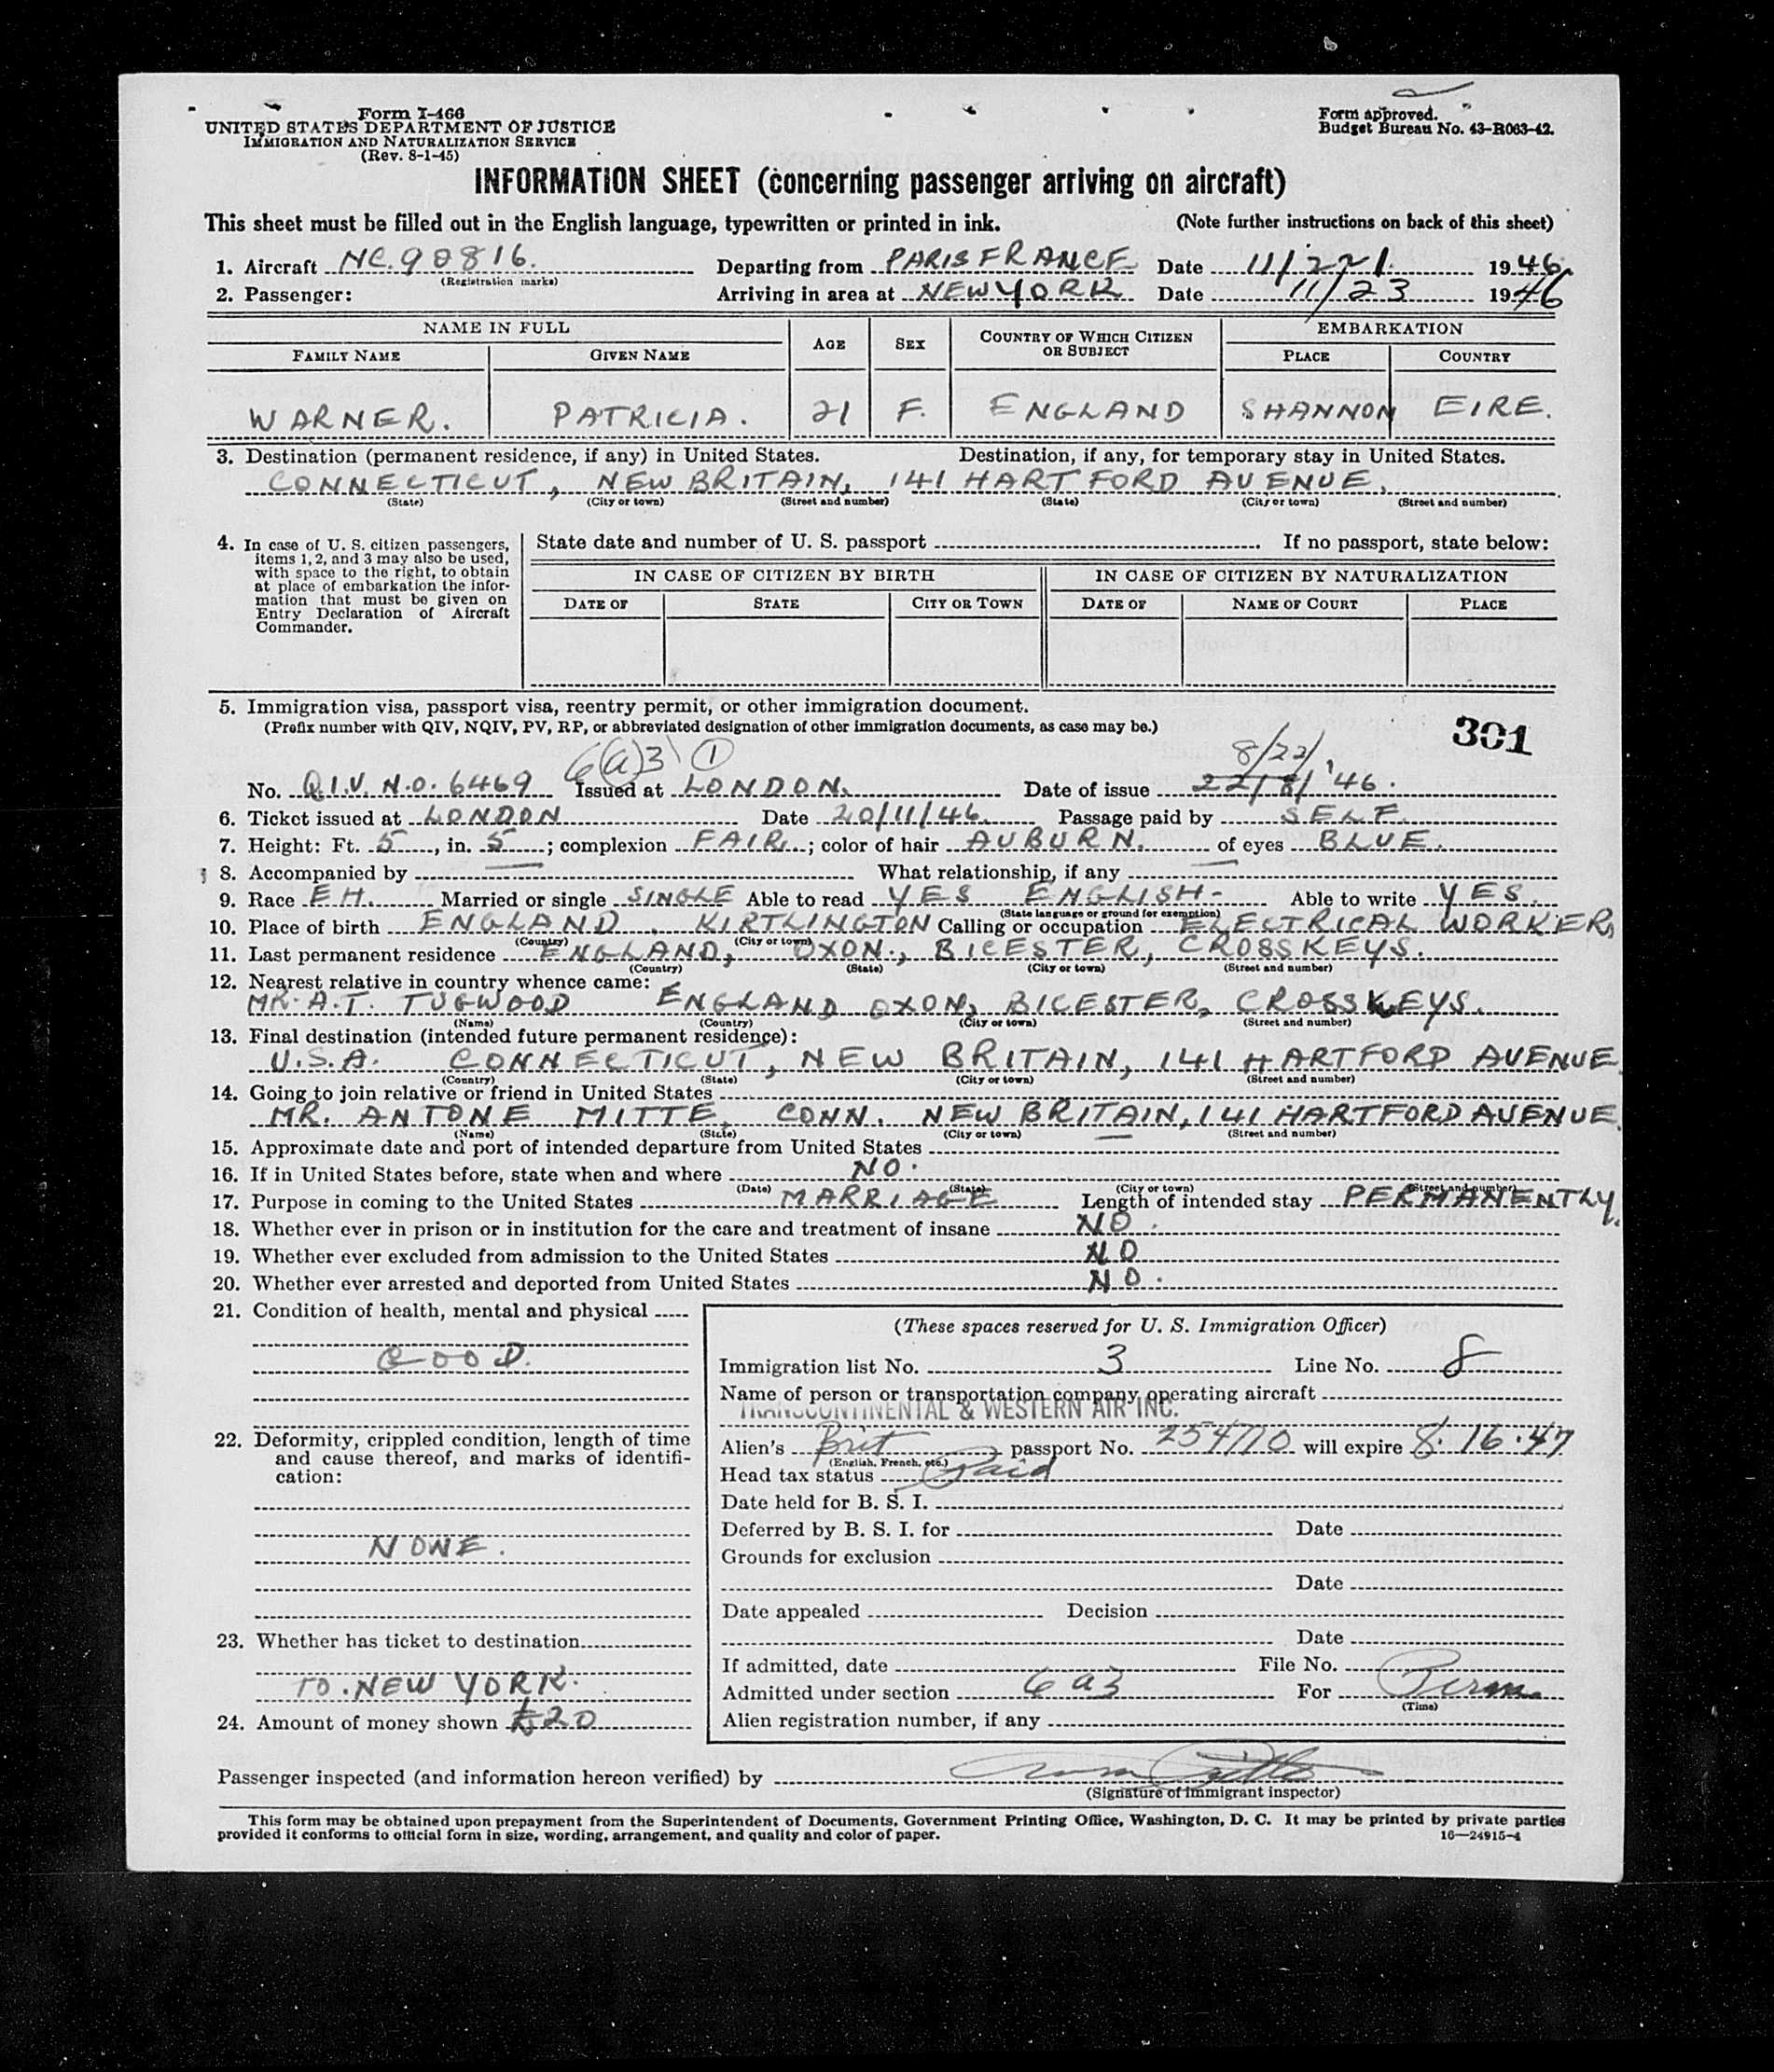 Form I-466
UNITED STATES DEPARTMENT OF JUSTICE
IMMIGRATION AND NATURALIZATION SERVICE
(Rev. 8-1-45)
Form approved.
Budget Bureau No. 43-R063-42.
INFORMATION SHEET (concerning passenger arriving on aircraft)
This sheet must be filled out in the English language, typewritten or printed in ink. (Note further instructions on back of this sheet)
1. Aircraft NC.90816. Departing from PARIS FRANCE Date 11/22/. 1946
(Registration marks)
2. Passenger: Arriving in area at NEW YORK Date 11/23 1946
NAME IN FULL AGE SEX COUNTRY OF WHICH CITIZEN OR SUBJECT EMBARKATION
FAMILY NAME GIVEN NAME PLACE COUNTRY
WARNER. PATRICIA. 21 F. ENGLAND SHANNON EIRE.
3. Destination (permanent residence, if any) in United States. Destination, if any, for temporary stay in United States.
CONNECTICUT, NEW BRITAIN, 141 HARTFORD AVENUE.
(State) (City or town) (Street and number) (State) (City or town) (Street and number)
4. In case of U. S. citizen passengers, items 1, 2, and 3 may also be used, with space to the right, to obtain at place of embarkation the information that must be given on Entry Declaration of Aircraft Commander.
State date and number of U. S. passport If no passport, state below:
IN CASE OF CITIZEN BY BIRTH IN CASE OF CITIZEN BY NATURALIZATION
DATE OF STATE CITY OR TOWN DATE OF NAME OF COURT PLACE
5. Immigration visa, passport visa, reentry permit, or other immigration document.
(Prefix number with QIV, NQIV, PV, RP, or abbreviated designation of other immigration documents, as case may be.)
301
6(a)3 1 8/22/
No. Q.I.V. N.O. 6469 Issued at LONDON. Date of issue 22/8/'46.
6. Ticket issued at LONDON Date 20/11/46. Passage paid by SELF.
7. Height: Ft. 5, in. 5; complexion FAIR; color of hair AUBURN. of eyes BLUE.
8. Accompanied by — What relationship, if any —
9. Race EH. Married or single SINGLE Able to read YES ENGLISH- Able to write YES.
(State language or ground for exemption)
10. Place of birth ENGLAND, KIRTLINGTON Calling or occupation ELECTRICAL WORKER,
(Country) (City or town)
11. Last permanent residence ENGLAND, OXON., BICESTER, CROSSKEYS.
(Country) (State) (City or town) (Street and number)
12. Nearest relative in country whence came:
MR. A.T. TUGWOOD ENGLAND OXON, BICESTER, CROSSKEYS.
(Name) (Country) (City or town) (Street and number)
13. Final destination (intended future permanent residence):
U.S.A. CONNECTICUT, NEW BRITAIN, 141 HARTFORD AVENUE.
(Country) (State) (City or town) (Street and number)
14. Going to join relative or friend in United States
MR. ANTONE MITTE, CONN. NEW BRITAIN, 141 HARTFORD AVENUE.
(Name) (State) (City or town) (Street and number)
15. Approximate date and port of intended departure from United States —
16. If in United States before, state when and where NO.
(Date) (State) (City or town) (Street and number)
17. Purpose in coming to the United States MARRIAGE Length of intended stay PERMANENTLY.
18. Whether ever in prison or in institution for the care and treatment of insane NO.
19. Whether ever excluded from admission to the United States NO
20. Whether ever arrested and deported from United States NO.
21. Condition of health, mental and physical
GOOD.
22. Deformity, crippled condition, length of time and cause thereof, and marks of identification:
NONE.
23. Whether has ticket to destination
TO. NEW YORK.
24. Amount of money shown £20
(These spaces reserved for U. S. Immigration Officer)
Immigration list No. 3 Line No. 8
Name of person or transportation company operating aircraft
TRANSCONTINENTAL & WESTERN AIR INC.
Alien's Brit passport No. 254770 will expire 8.16.47
(English, French, etc.)
Head tax status Paid
Date held for B. S. I.
Deferred by B. S. I. for Date
Grounds for exclusion
Date
Date appealed Decision
Date
If admitted, date File No.
Admitted under section 6 a3 For Perm.
(Time)
Alien registration number, if any
Passenger inspected (and information hereon verified) by
(Signature of immigrant inspector)
This form may be obtained upon prepayment from the Superintendent of Documents, Government Printing Office, Washington, D. C. It may be printed by private parties
provided it conforms to official form in size, wording, arrangement, and quality and color of paper. 16—24915-4